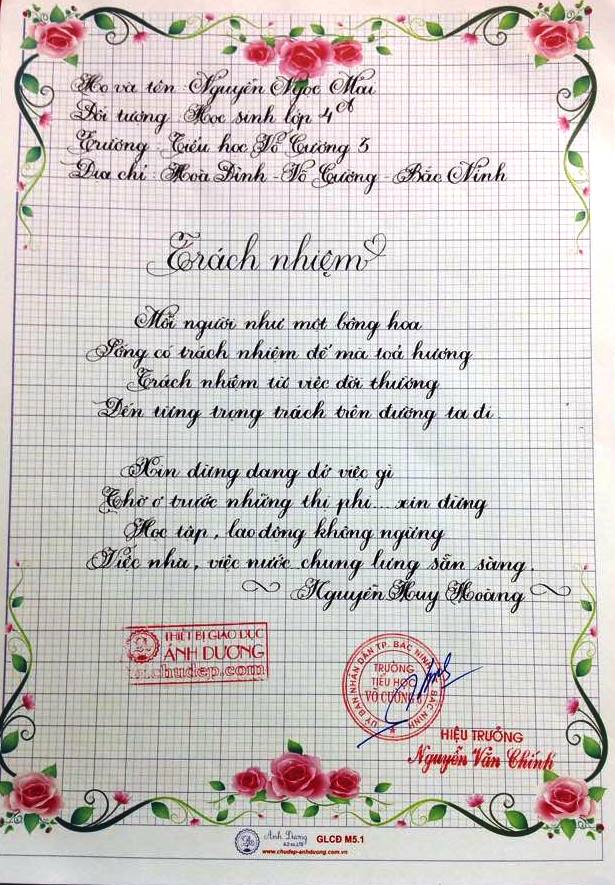 Họ và tên : Nguyễn Ngọc Mai
Đối tượng : Học sinh lớp 4A
Trường : Tiểu học Võ Cường 3
Địa chỉ : Hoà Đình - Võ Cường - Bắc Ninh
Trách nhiệm
Mỗi người như một bông hoa
Sống có trách nhiệm để mà toả hương
Trách nhiệm từ việc đời thường
Đến từng trọng trách trên đường ta đi.
Xin đừng dang dở việc gì
Thờ ơ trước những thị phi... xin đừng
Học tập, lao động không ngừng
Việc nhà, việc nước chung lưng sẵn sàng.
Nguyễn Huy Hoàng
THIẾT BỊ GIÁO DỤC
ÁNH DƯƠNG
chudep.com
ỦY BAN NHÂN DÂN TP. BẮC NINH
BẮC NINH
TRƯỜNG
TIỂU HỌC
VÕ CƯỜNG
HIỆU TRƯỞNG
Nguyễn Văn Chính
Ánh Dương
GLCĐ M5.1
www.chudep-anhduong.com.vn